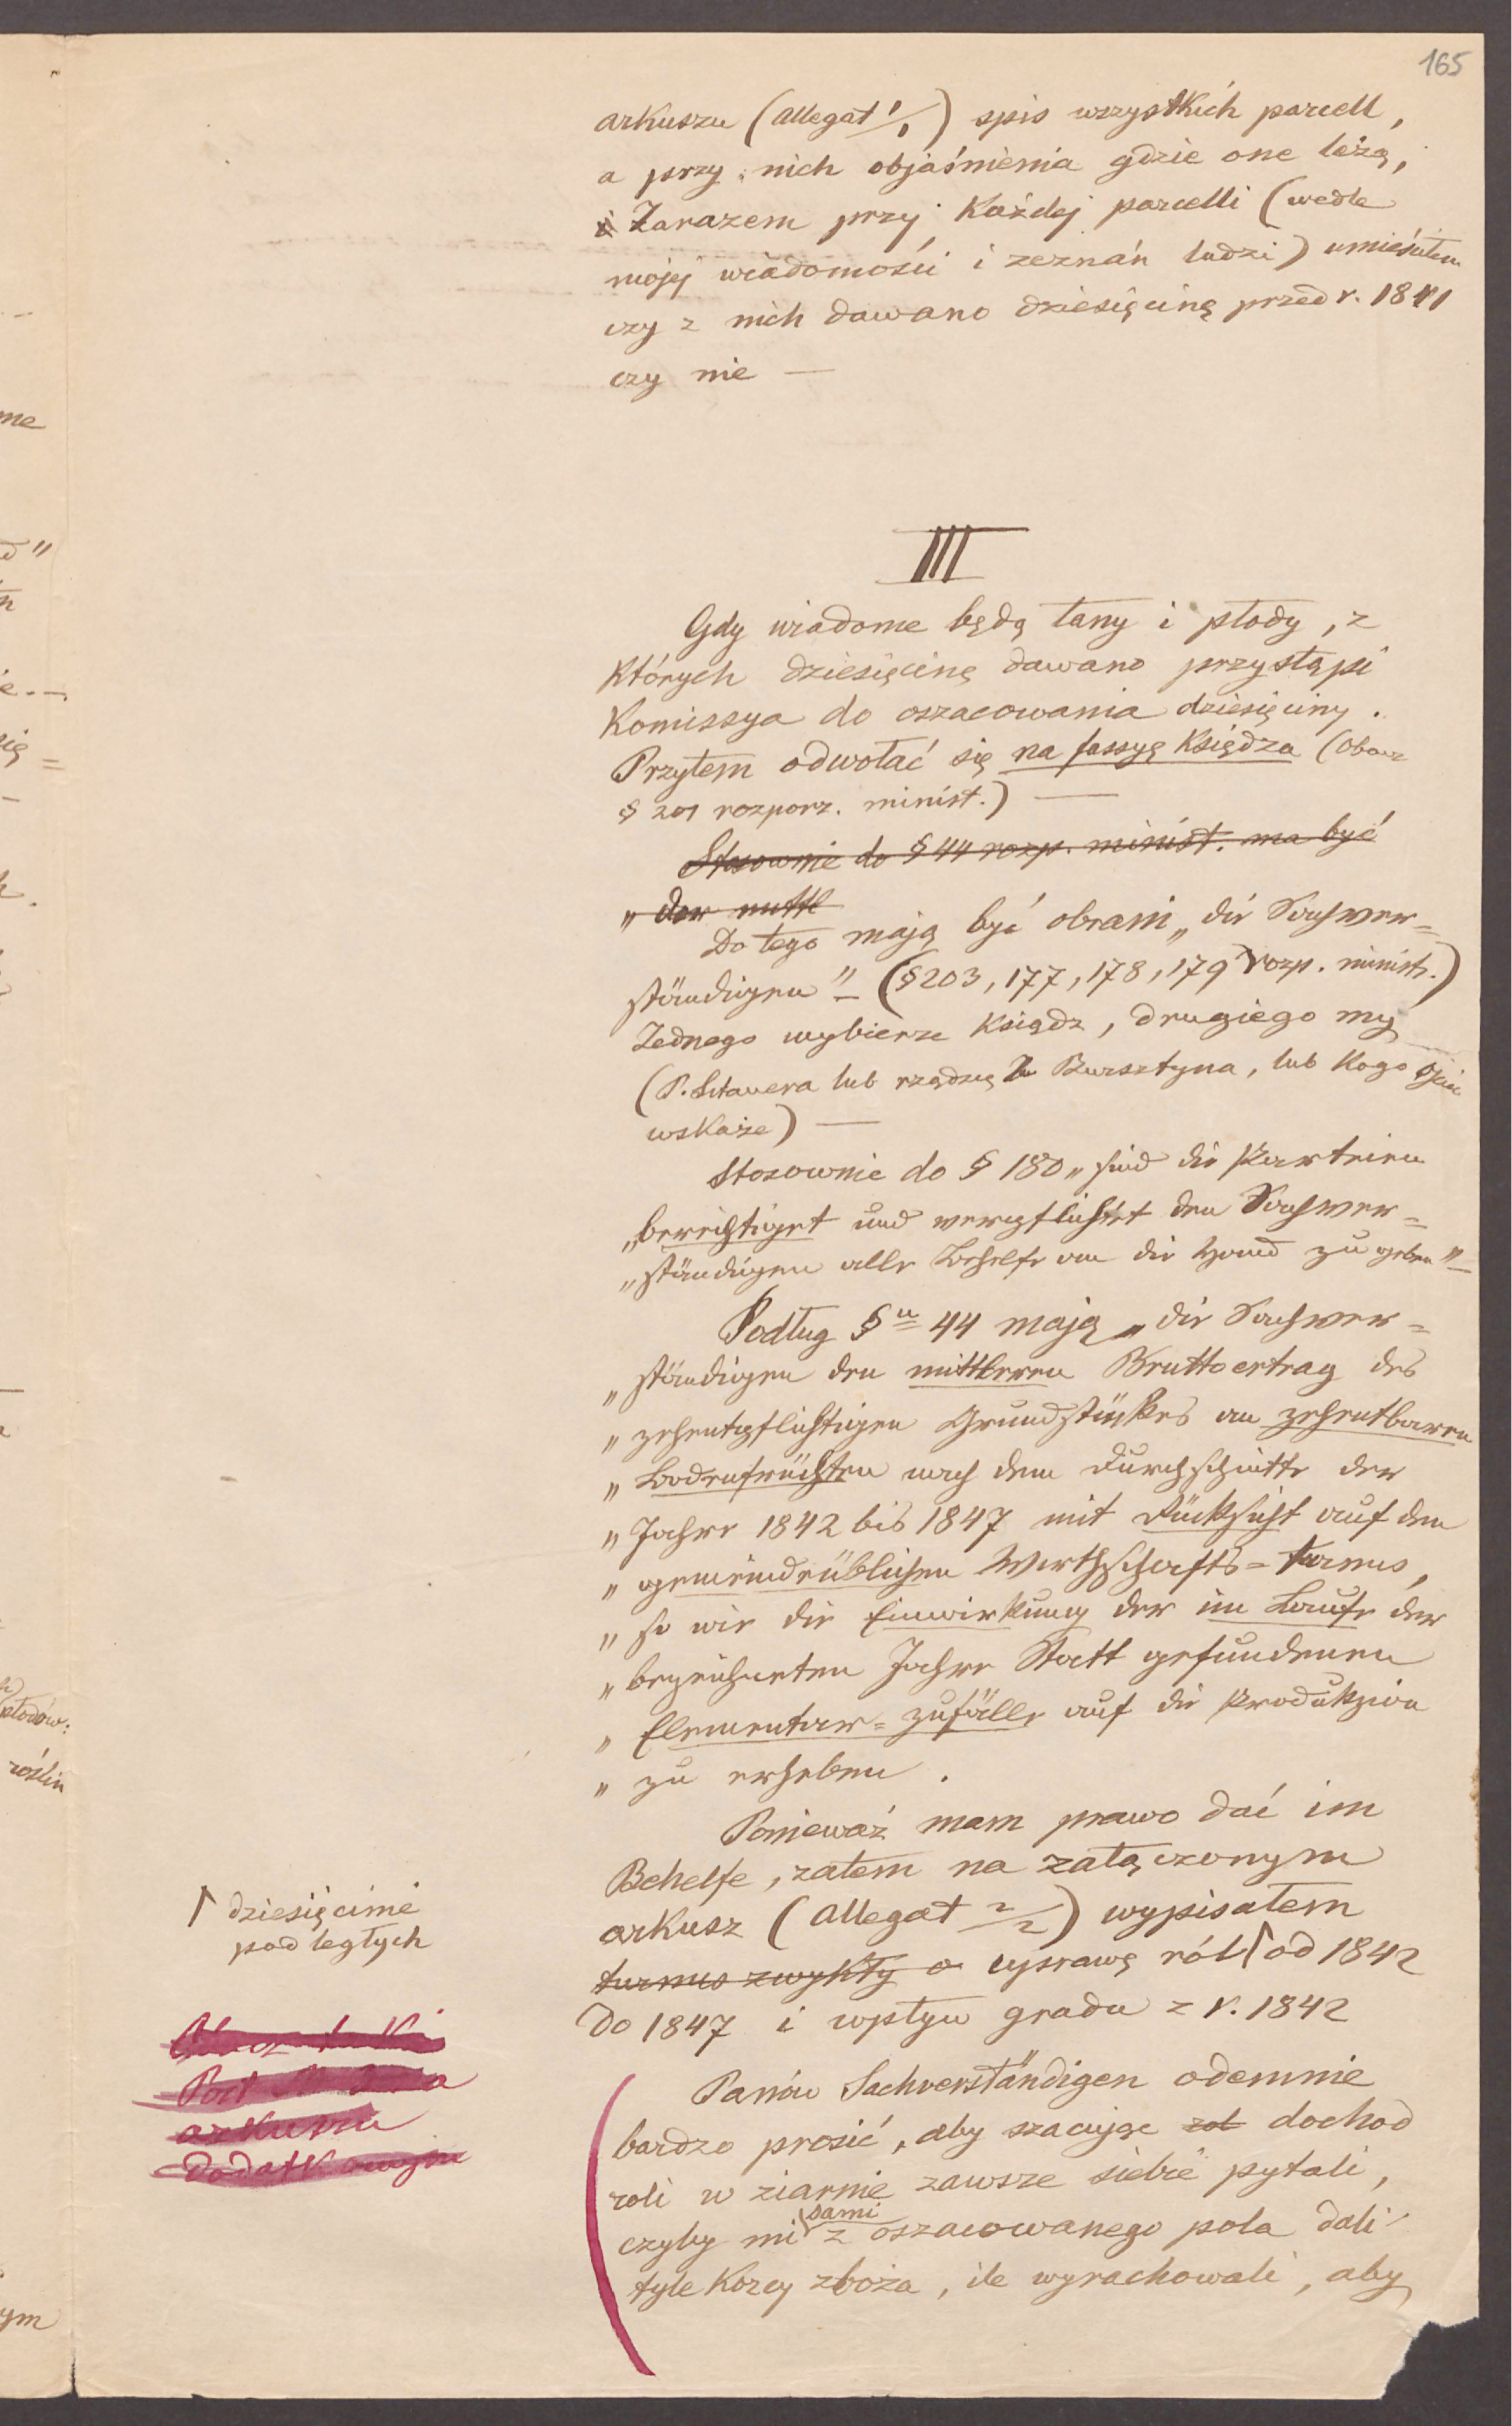 165
arkuszu (allegat 1/1) spis wszystkich parcell,
a przy nich objaśnienia gdzie one leżą,
i Zarazem przy każdej parcelli (wedle
mojej wiadomości i zeznań ludzi) umieściłem
czy z nich dawano dziesięcinę przed r. 1841
czy nie —
III
Gdy wiadome będą łany i płody, z
których dziesięcinę dawano przystąpi
Komissya do oszacowania dziesięciny.
Przytem odwołać się na fassyę Księdza (Obacz
§ 201 rozporz. minist.) —
Stosownie do § 44 rozp. minist. ma być
„der mittl
Do tego mają być obrani „die Sachver=
ständigen" — (§203, 177, 178, 179 rozp. ministr.)
Jednego wybierze Ksiądz, drugiego my
(P. lub rządzcę Bursztyna, lub kogo Ojciec
wskaże) —
Stosownie do § 180 „sind die Parteien
„berechtiget und verpflichtet den Sachver=
„ständigen alle Behelfe an die Hand zu geben" —
Podług §u 44 mają „die Sachver=
„ständigen den mittleren Bruttoertrag des
„zehentpflichtigen Grundstückes an zehentbaren
„Bodenfrüchten nach dem Durchschnitte der
„Jahre 1842 bis 1847 mit Rücksicht auf den
„gemeindeüblichen Wirthschafts=turnus,
„so wie die Einwirkung der im Laufe der
„bezeichneten Jahre Statt gefundenen
„Elementar=zufälle auf die Produkzion
„zu erheben.
Ponieważ mam prawo dać im
Behelfe, zatem na załączonym
arkusz (allegat 2/2) wypisałem
turnus zwykły o uprawę ról od 1842
do 1847 i wpływ gradu z r. 1842
dziesięcinie
podległych
arkuszu
dodatkowym
Panów Sachverständigen odemnie
bardzo prosić, aby szacując dochod
roli w ziarnie zawsze siebie pytali,
czyby mi sami z oszacowanego pola dali
tyle korcy zboża, ile wyrachowali, aby
me
płodów:
roślin
ym